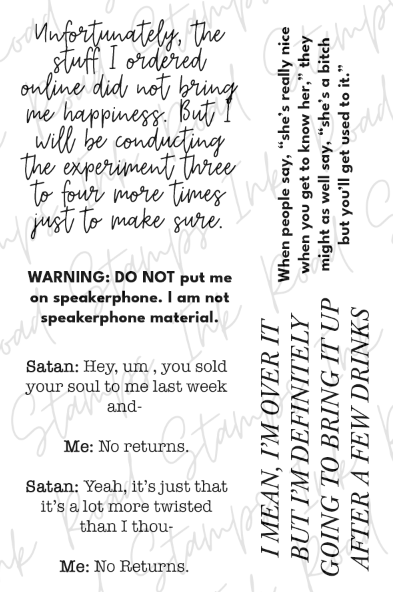 Unfortunately, the
stuff I ordered
online did not bring
me happiness. But I
will be conducting
the experiment three
to four more times
just to make sure.
WARNING: DO NOT put me
on speakerphone. I am not
speakerphone material.
Satan: Hey, um , you sold
your soul to me last week
and-
Me: No returns.
Satan: Yeah, it's just that
it's a lot more twisted
than I thou-
Me: No Returns.
When people say, “she's really nice
when you get to know her,” they
might as well say, “she's a bitch
but you'll get used to it.”
I MEAN, I'M OVER IT
BUT I'M DEFINITELY
GOING TO BRING IT UP
AFTER A FEW DRINKS
Ink Road Stamps